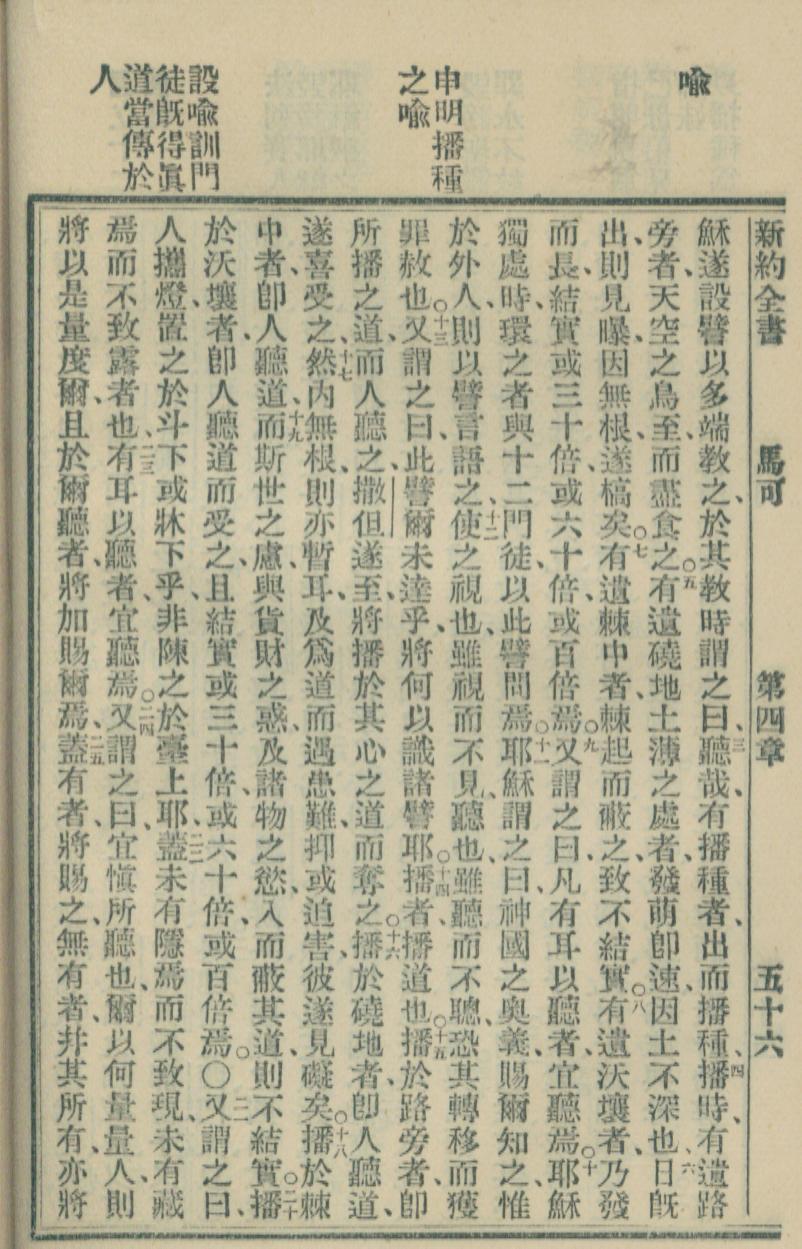 喩
申明播種
之喩
設喩訓門
徒旣得眞
道當傳於
人
新約全書 馬可 第四章 五十六
穌遂設譬以多端教之、於其教時謂之曰、三聽哉、有播種者、出而播種、四播時、有遺路
旁者、天空之鳥至、而盡食之。五有遺磽地土薄之處者、發萌卽速、因土不深也、六日旣
出、則見曝、因無根、遂槁矣。七有遺棘中者、棘起而蔽之、致不結實。八有遺沃壤者、乃發
而長、結實或三十倍、或六十倍、或百倍焉。九又謂之曰、凡有耳以聽者、宜聽焉。十耶穌
獨處時、環之者與十二門徒、以此譬問焉。十一耶穌謂之曰、神國之奧義、賜爾知之、惟
於外人、則以譬言語之、十二使之視也、雖視而不見、聽也、雖聽而不聰、恐其轉移而獲
罪赦也。十三又謂之曰、此譬爾未達乎、將何以識諸譬耶。十四播者、播道也。十五播於路旁者、卽
所播之道、而人聽之、撒但遂至、將播於其心之道而奪之。十六播於磽地者、卽人聽道、
遂喜受之、十七然內無根、則亦暫耳、及爲道而遇患難、抑或迫害、彼遂見礙矣。十八播於棘
中者、卽人聽道、十九而斯世之慮、與貨財之惑、及諸物之慾、入而蔽其道、則不結實。二十播
於沃壤者、卽人聽道而受之、且結實或三十倍、或六十倍、或百倍焉。〇二一又謂之曰、
人攜燈、置之於斗下或牀下乎、非陳之於臺上耶、二二蓋未有隱焉而不致現、未有藏
焉而不致露者也、二三有耳以聽者、宜聽焉。二四又謂之曰、宜愼所聽也、爾以何量量人、則
將以是量度爾、且於爾聽者、將加賜爾焉、二五蓋有者、將賜之、無有者、幷其所有、亦將